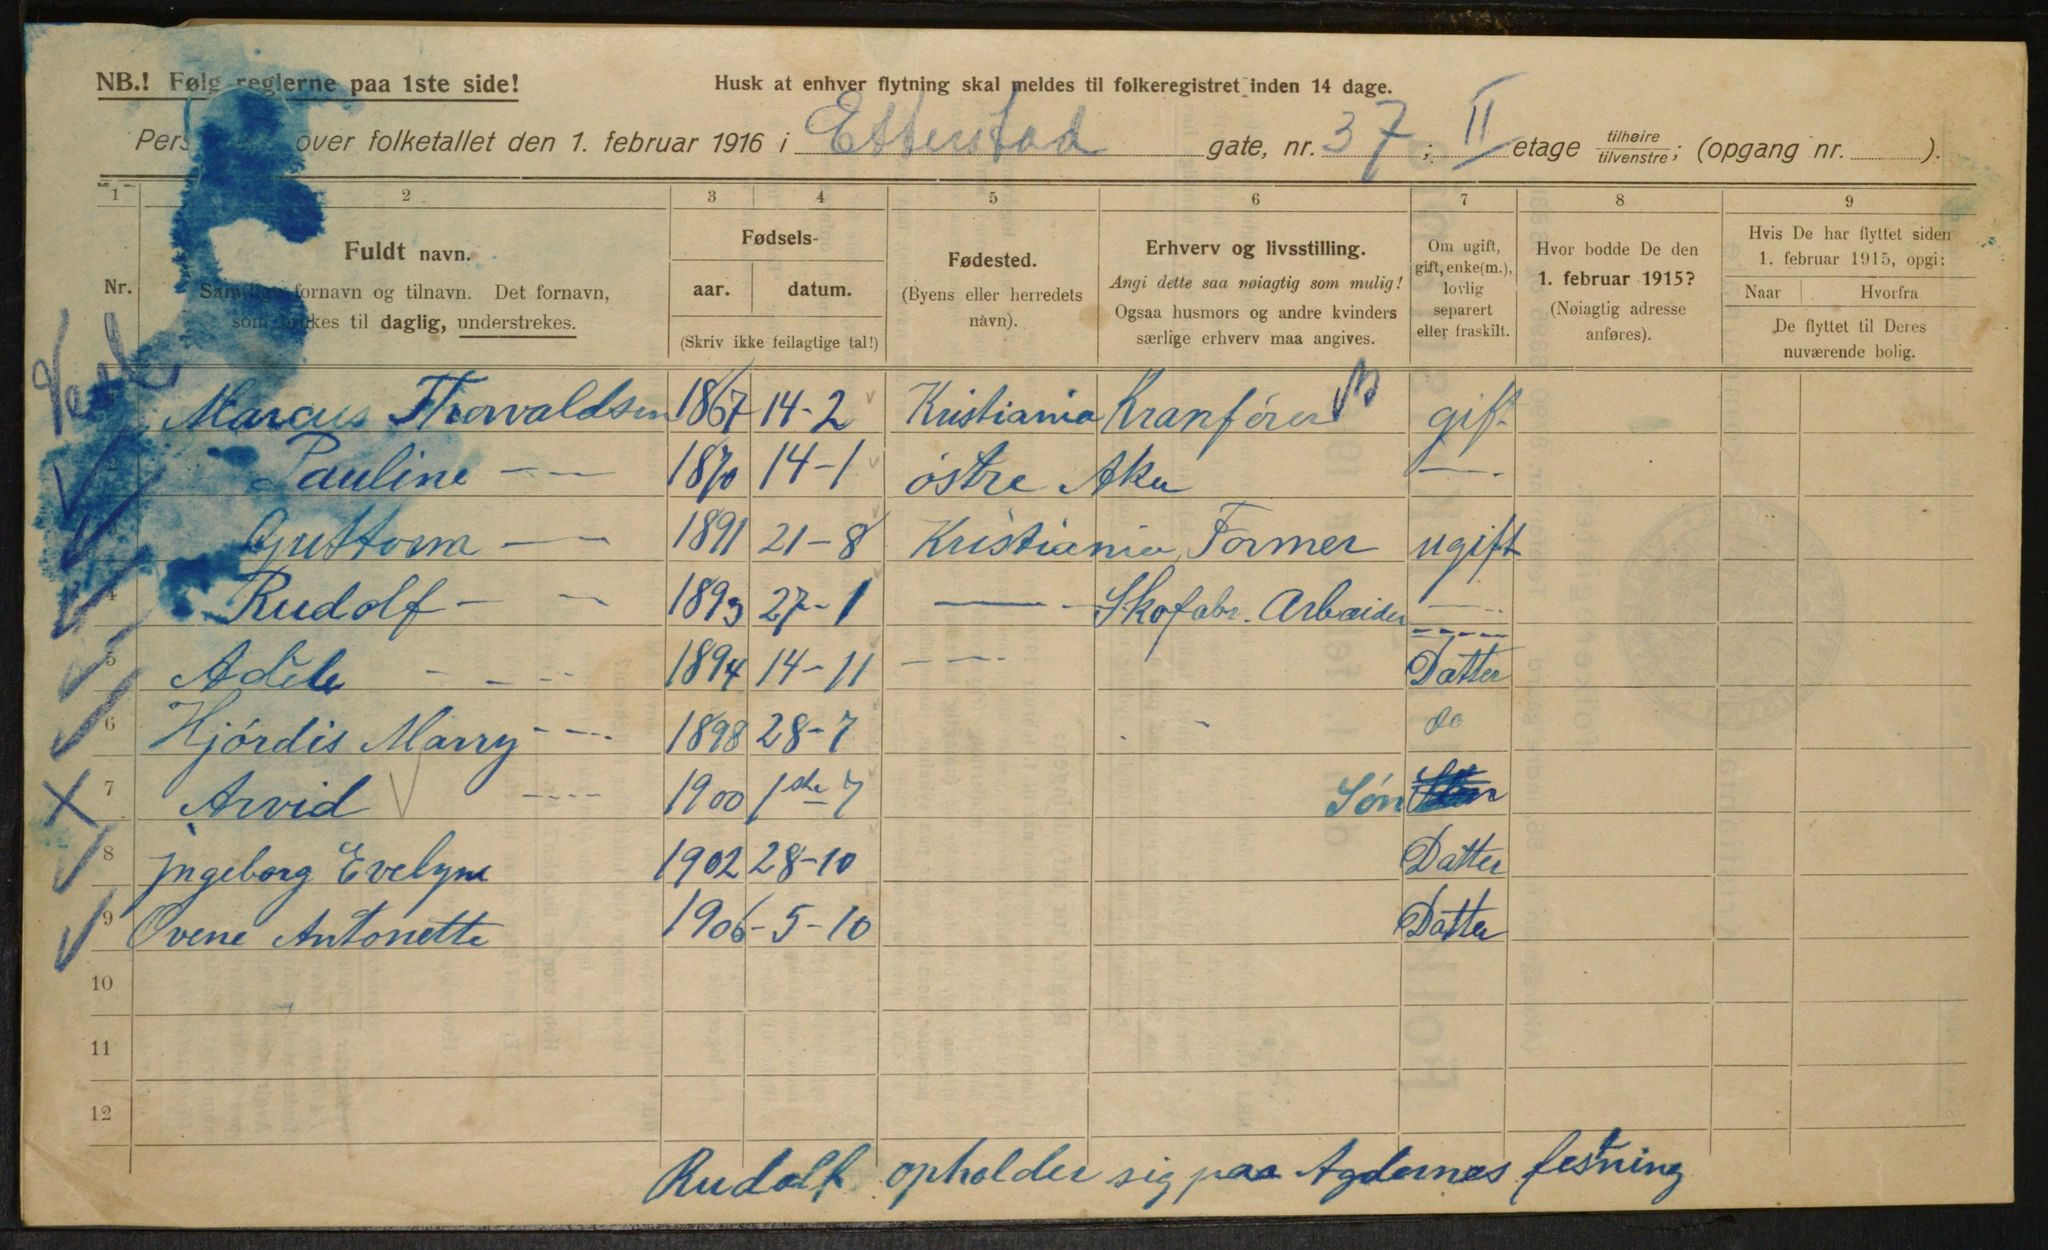 NB.! Følg reglerne paa 1ste side!
Husk at enhver flytning skal meldes til folkeregistret inden 14 dage.
over folketallet den 1. februar 1916 i Etterstad gate, nr. 37; II etage tilhøire / tilvenstre; (opgang nr. ).
1 2 3 4 5 6 7 8 9
Nr.
Fuldt navn.
Samtlige fornavn og tilnavn. Det fornavn,
som brukes til daglig, understrekes.
Fødsels-
aar. datum.
(Skriv ikke feilagtige tal!)
Fødested.
(Byens eller herredets
navn).
Erhverv og livsstilling.
Angi dette saa nøiagtig som mulig!
Ogsaa husmors og andre kvinders
særlige erhverv maa angives.
Om ugift,
gift, enke(m.),
lovlig
separert
eller fraskilt.
Hvor bodde De den
1. februar 1915?
(Nøiagtig adresse
anføres).
Hvis De har flyttet siden
1. februar 1915, opgi:
Naar Hvorfra
De flyttet til Deres
nuværende bolig.
Marcus Thorvaldsen 1867 14-2 Kristiania Kranfører gift
2 Pauline — — 1870 14-1 østre Aker —
3 Guttorm — — 1891 21-8 Kristiania Former ugift
4 Rudolf — — 1893 27-1 — Skofabr. Arbeider —
5 Adele — — — 1894 14-11 — — Datter
6 Hjórdis Marry — — 1898 28-7 do
7 Arvid — — 1900 1ste 7 Són
8 Ingeborg Evelyne 1902 28-10 Datter
9 Ovene Antonette 1906 - 5 - 10 Datter
10
11
12
Rudolf opholder sig paa Agdernes festning